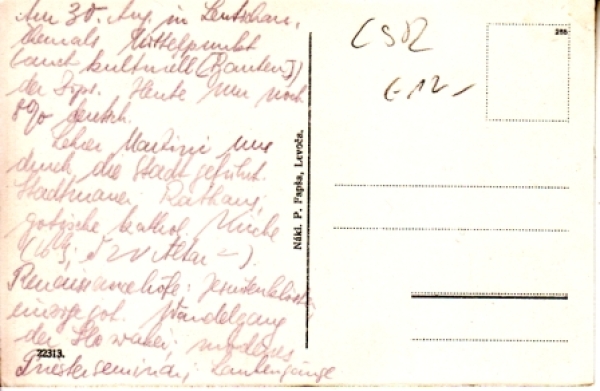 Am 30. Aug. in Leutschau,
ehemals Mittelpunkt
kulturell (Bauten!)
der Zips. Heute nur noch
8% deutsch.
Lehrer Martini uns
durch die Stadt geführt.
Stadtmauer, Rathaus,
gotische kathol. Kirche
Altar
Renaissancehöfe: Jesuitenkloster
Wandelgang
der Slowakei
Priesterseminar, Laubengänge
22313.
Nákl. P. Fapša, Levoča.
ČSR
266